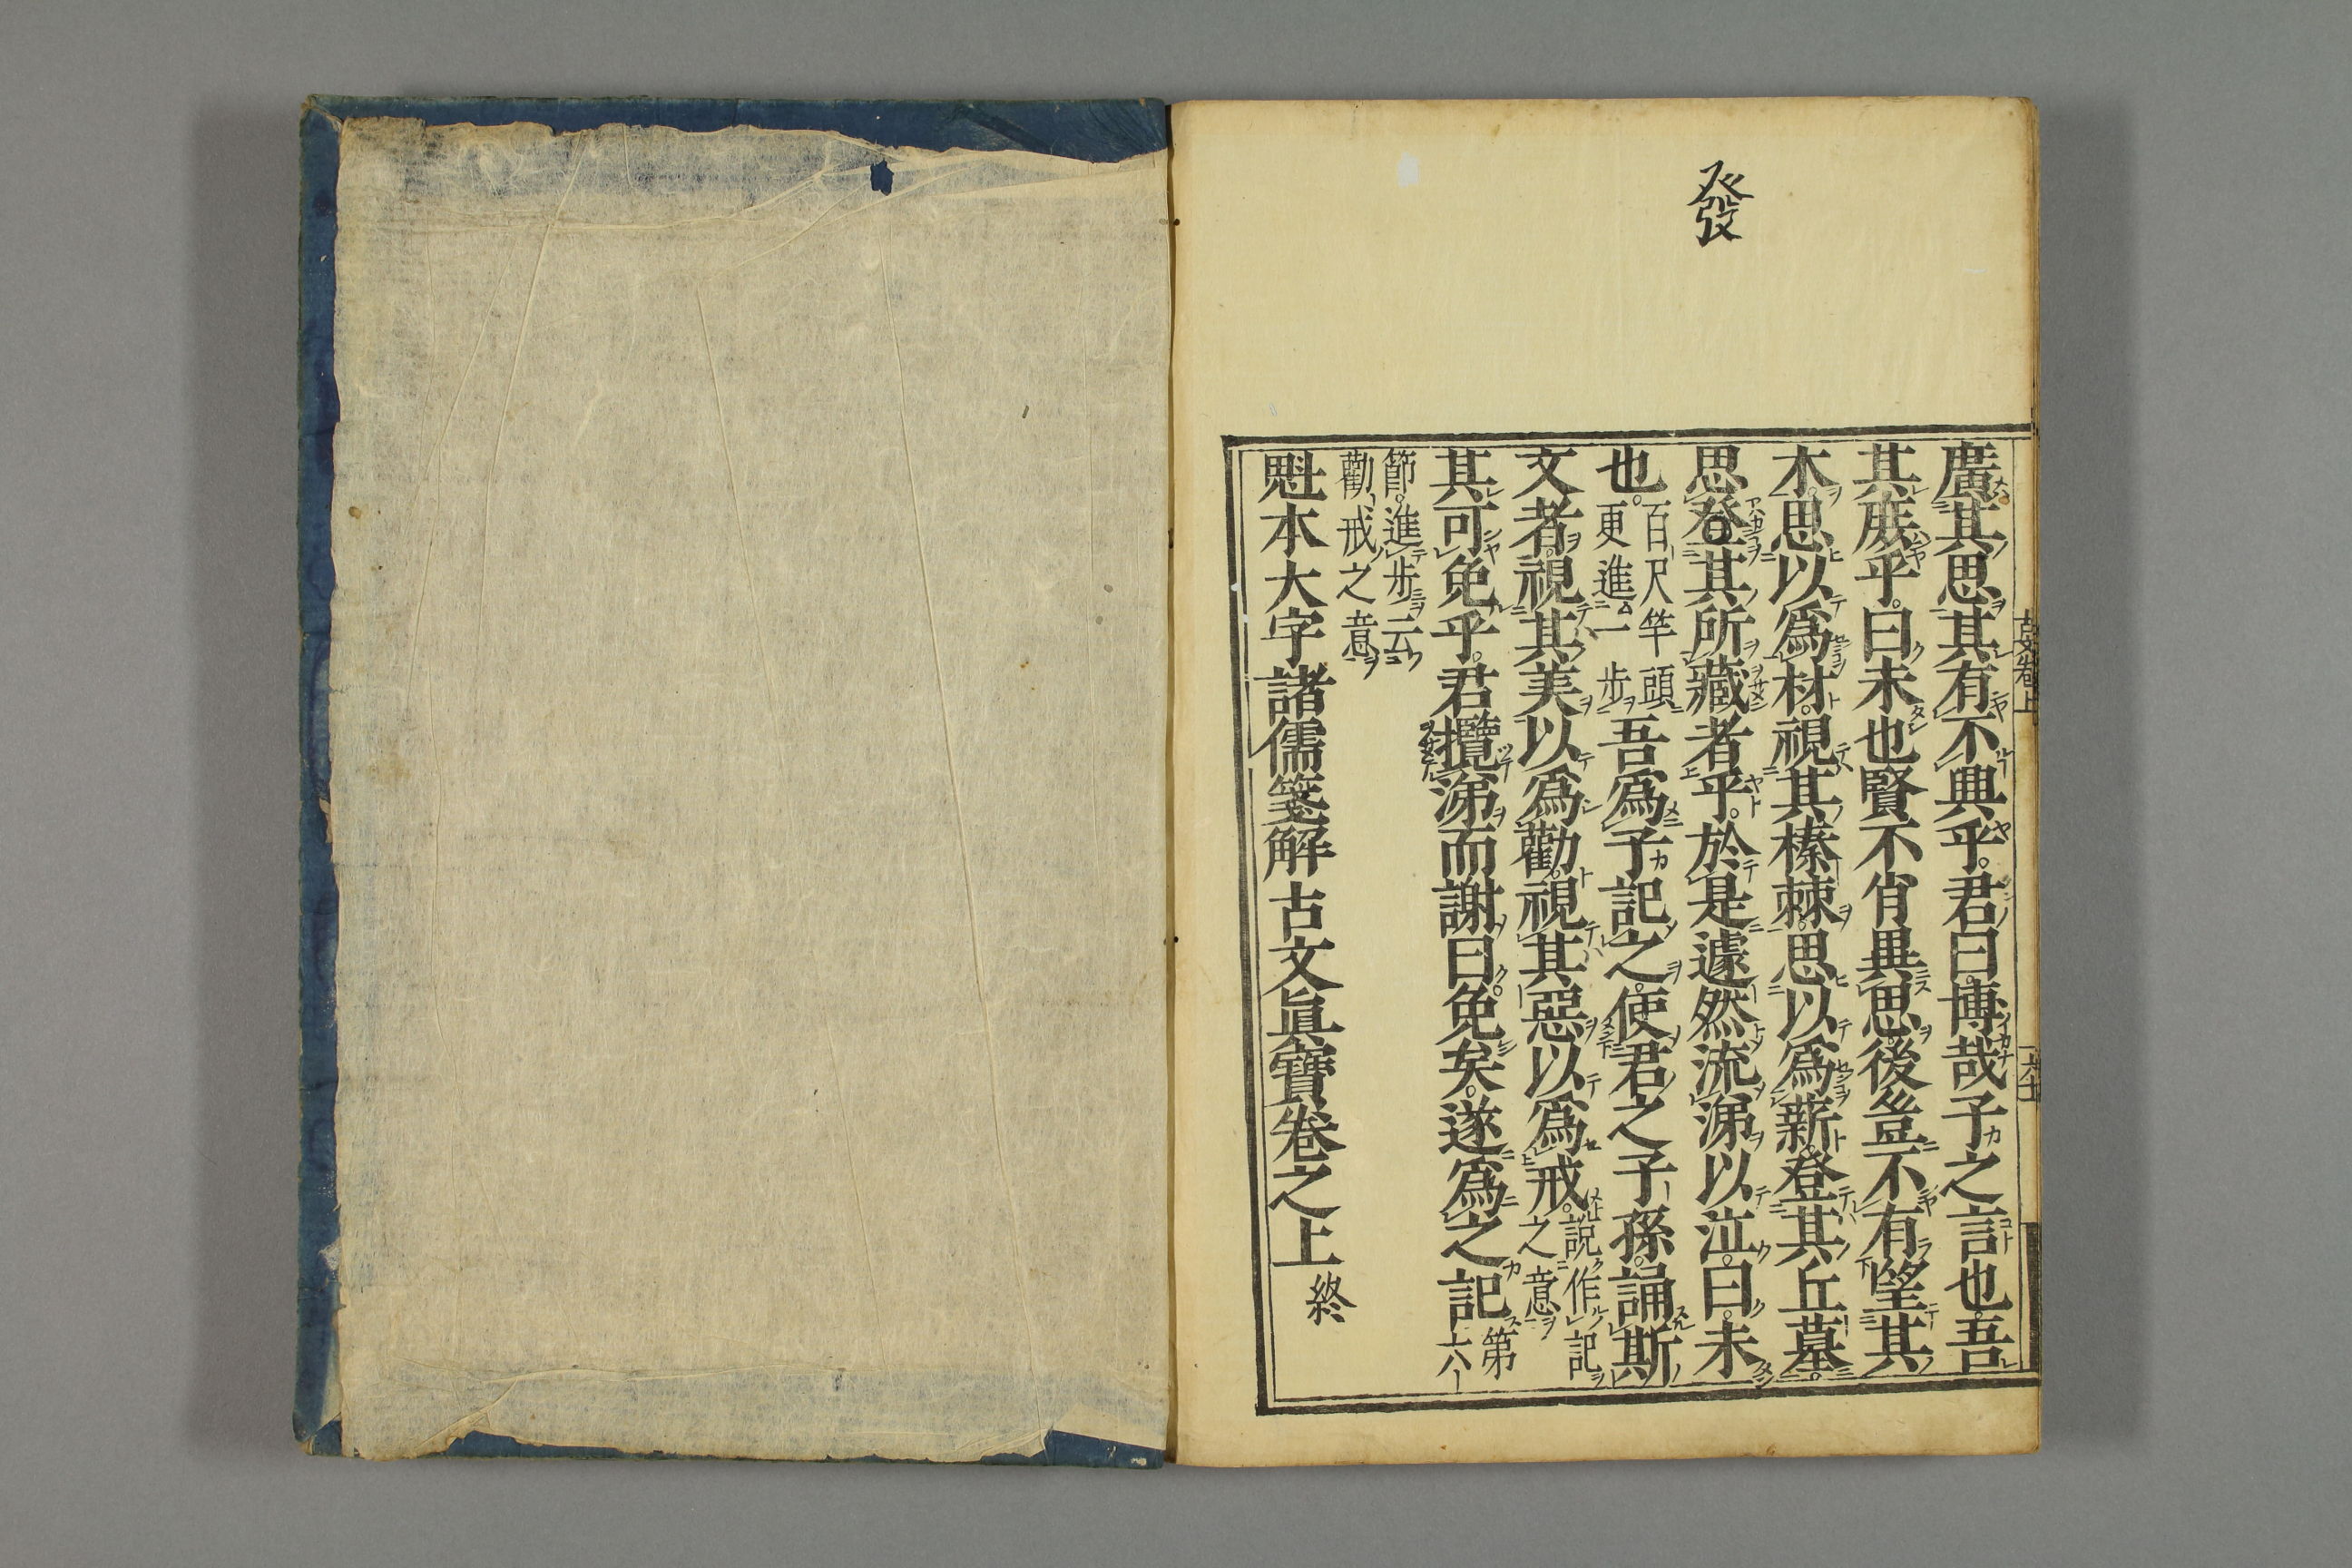 發
廣其思其有不興乎。君曰。博哉子之言也。吾
其庶乎。曰未也賢不肖異思。後豈不有望其
木。思以爲材。視其榛棘。思以爲薪。登其丘墓。
思發其所藏者乎。於是遽然流涕以泣。曰。未
也。百尺竿頭
更進一步吾爲子記之。使君之子孫。誦斯
文者。視其美以爲勸。視其惡以爲戒。說作記
之意
其可免乎。君攬涕而謝曰。免矣。遂爲之記第
六
節。進步云
勸戒之意
魁本大字諸儒箋解古文眞寶卷之上 終
古文卷上
六十